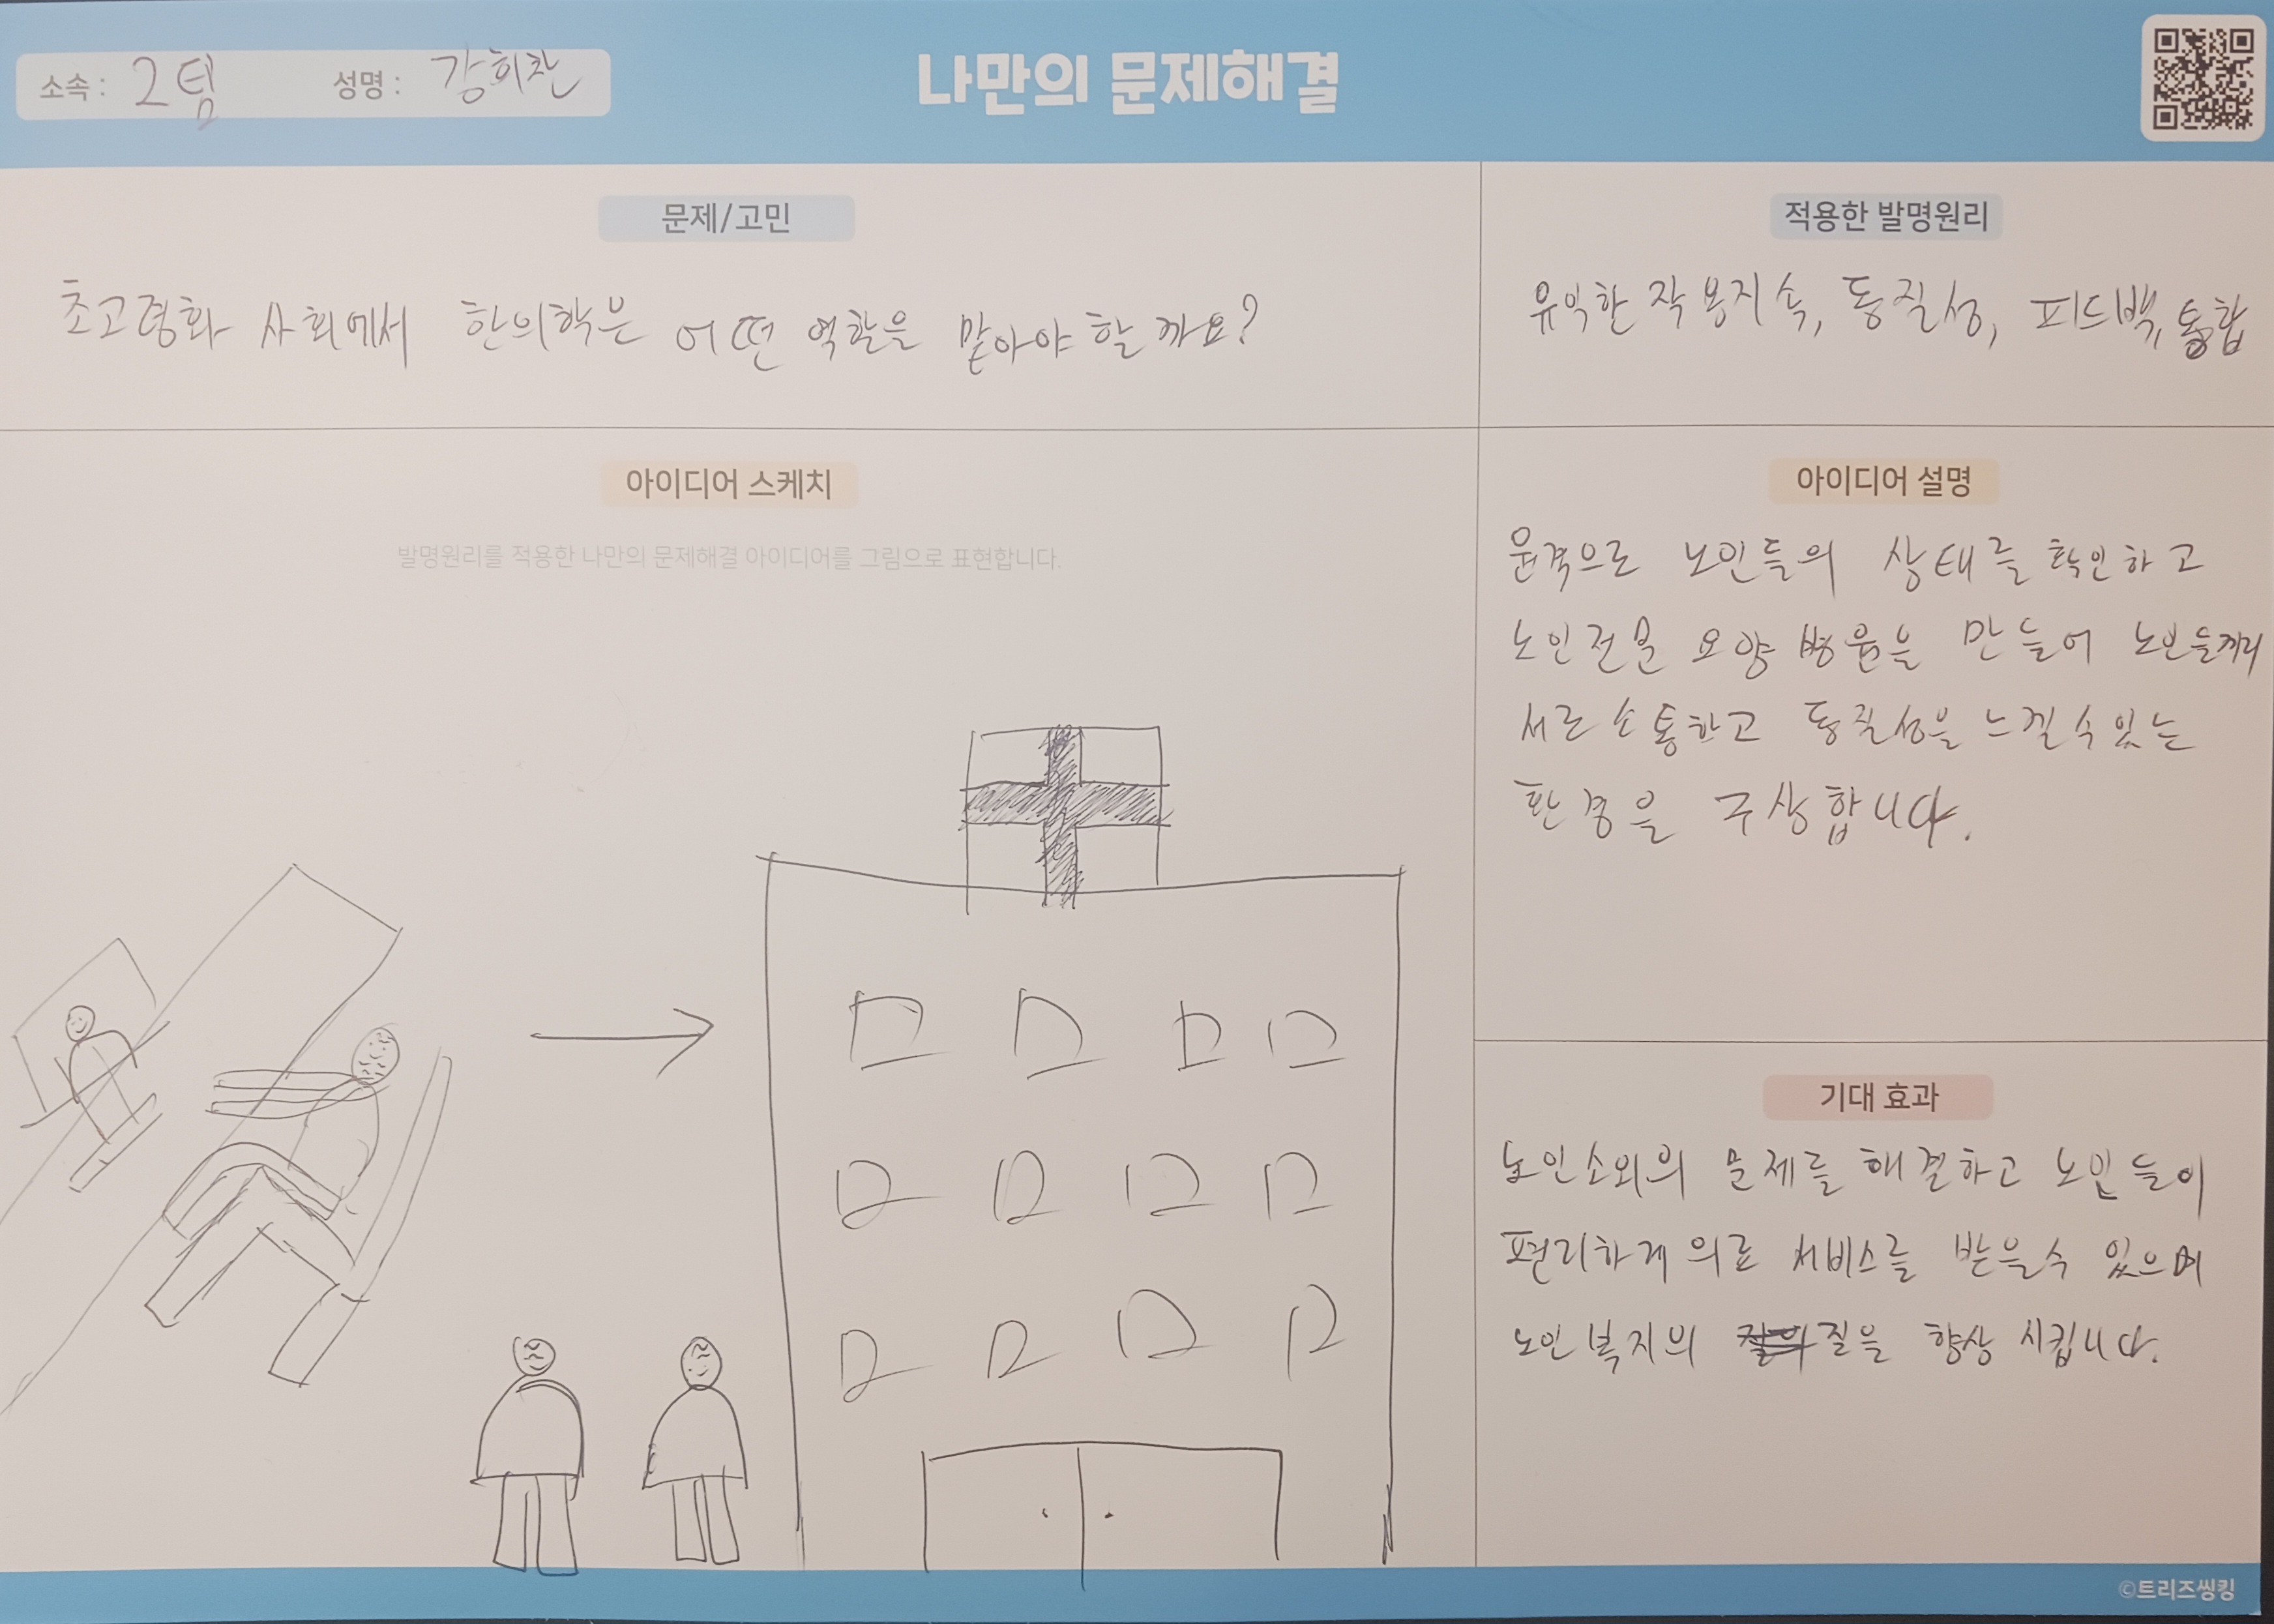 소속 : 2팀 성명 : 강희찬
나만의 문제해결
문제/고민
초고령화 사회에서 한의학은 어떤 역할을 맡아야 할까요?
적용한 발명원리
유익한 작용지속, 동질성, 피드백, 통합
아이디어 스케치
발명원리를 적용한 나만의 문제해결 아이디어를 그림으로 표현합니다.
아이디어 설명
원격으로 노인들의 상태를 확인하고
노인전문 요양병원을 만들어 노인들끼리
서로 소통하고 동질성을 느낄 수 있는
환경을 구상합니다.
기대 효과
노인소외의 문제를 해결하고 노인들이
편리하게 의료 서비스를 받을수 있으며
노인복지의 질을 향상 시킵니다.
©트리즈씽킹